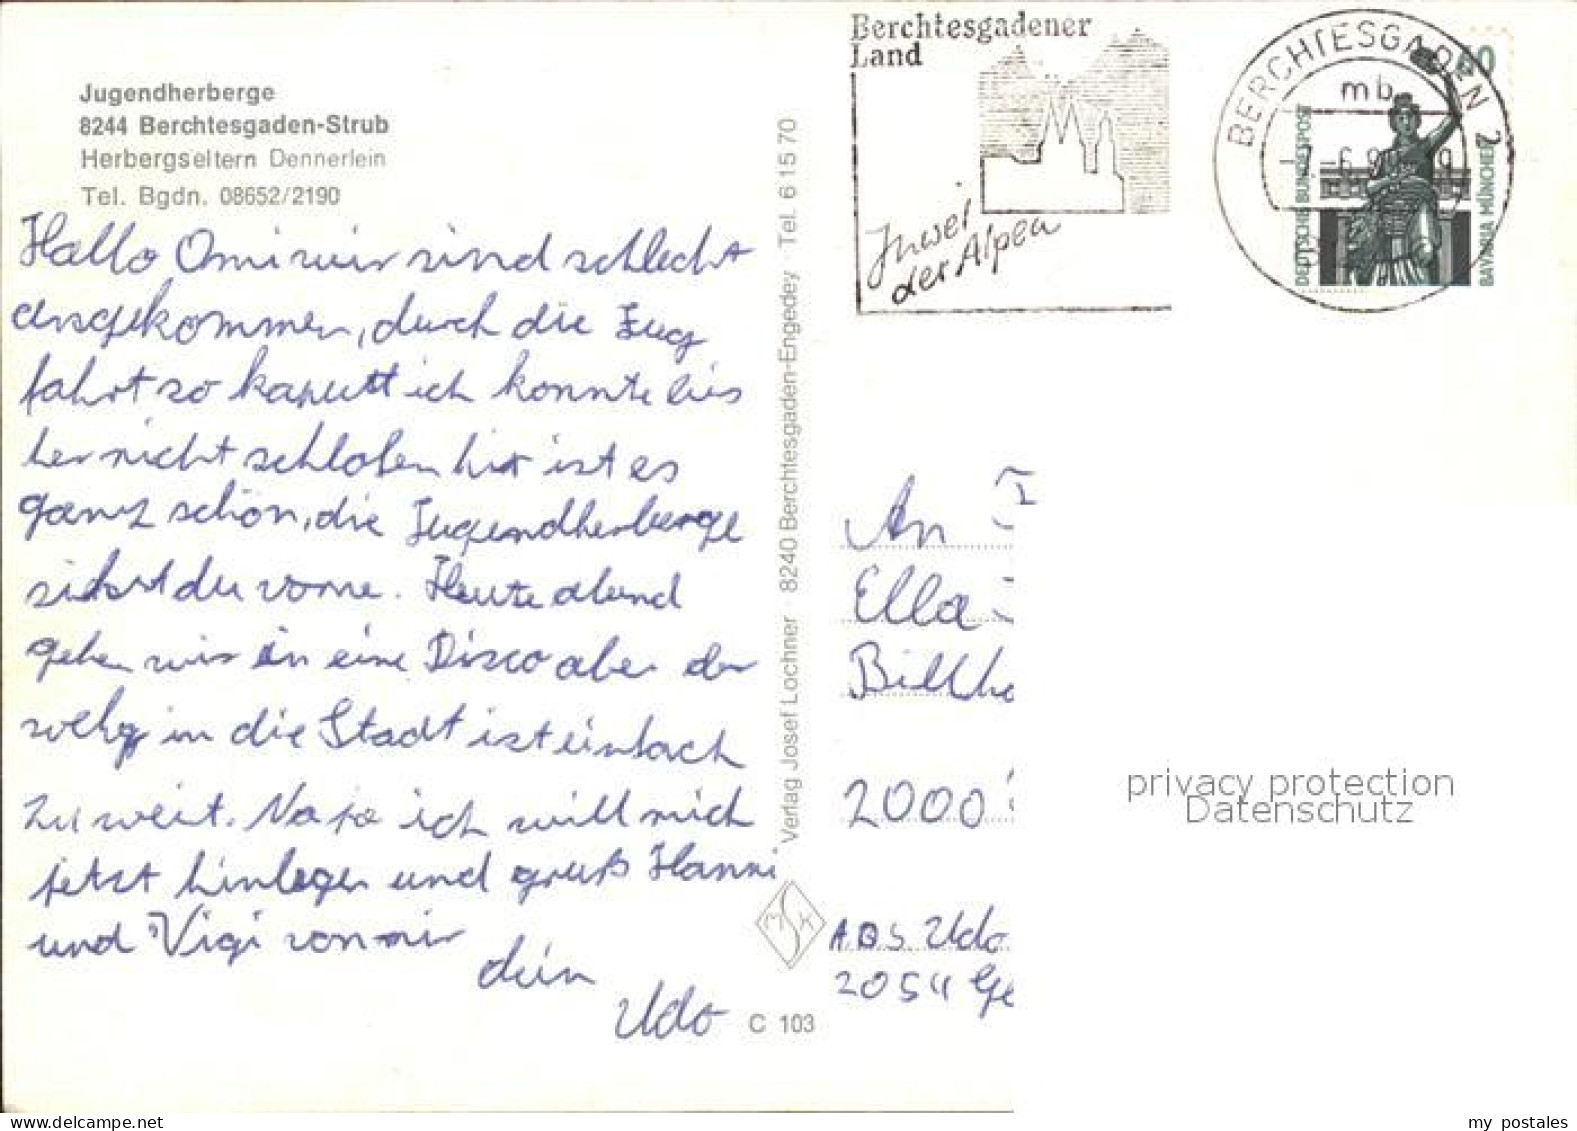 Jugendherberge
8244 Berchtesgaden-Strub
Herbergseltern Dennerlein
Tel. Bgdn. 08652/2190
Hallo Omi wir sind schlecht
angekommen, durch die Zug
fahrt so kaputt ich konnte lies
ber nicht schlafen hir ist es
ganz schön, die Jugendherberge
sihst du vorne. Heute abend
gehen wir in eine Disco aber der
weg in die Stadt ist einfach
zu weit. Na ja ich will mich
jetzt hinlegen und gruß Hanni
und Vigi von mir
dein
Udo
Verlag Josef Lochner · 8240 Berchtesgaden-Engedey · Tel. 6 15 70
C 103
Berchtesgadener
Land
Juwel
der Alpen
BERCHTESGADEN 2
mb
DEUTSCHE BUNDESPOST
BAVARIA MÜNCHEN
An
Ella
Billho
2000
ABS Udo
2054 Ge
privacy protection
Datenschutz
my postales